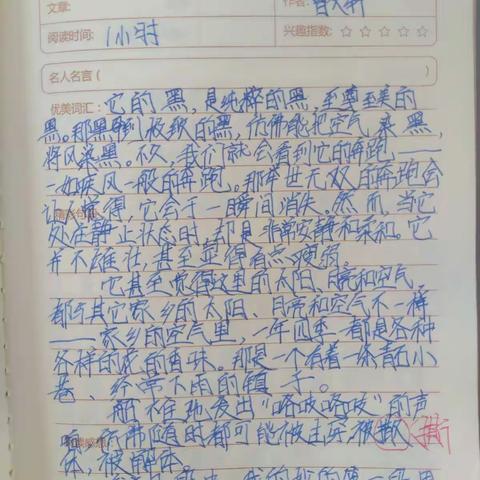 文章：
作者：
阅读时间：1小时
兴趣指数：☆☆☆☆☆
名人名言（ ）
优美词汇：它的黑，是纯粹的黑，至尊至美的
黑。那黑到极致的黑，仿佛能把空气染黑，
将风染黑。不久，我们就会看到它的奔跑——
一如疾风一般的奔跑。那举世无双的奔跑会
让觉得，它会于一瞬间消失。然而，当它
处在静止状态时，却是非常安静和柔和。它
并不雄壮，甚至显得有点瘦弱。
它甚至觉得这里的太阳、月亮和空气，
都与其它家乡的太阳、月亮和空气不一样
——家乡的空气里，一年四季都是各种
各样的花的香味。那是一个有着一条青石小
巷、经常下雨的镇子。
不住地发出“咯吱咯吱”的声
仿佛随时都可能被击穿被撕
体，被解体。